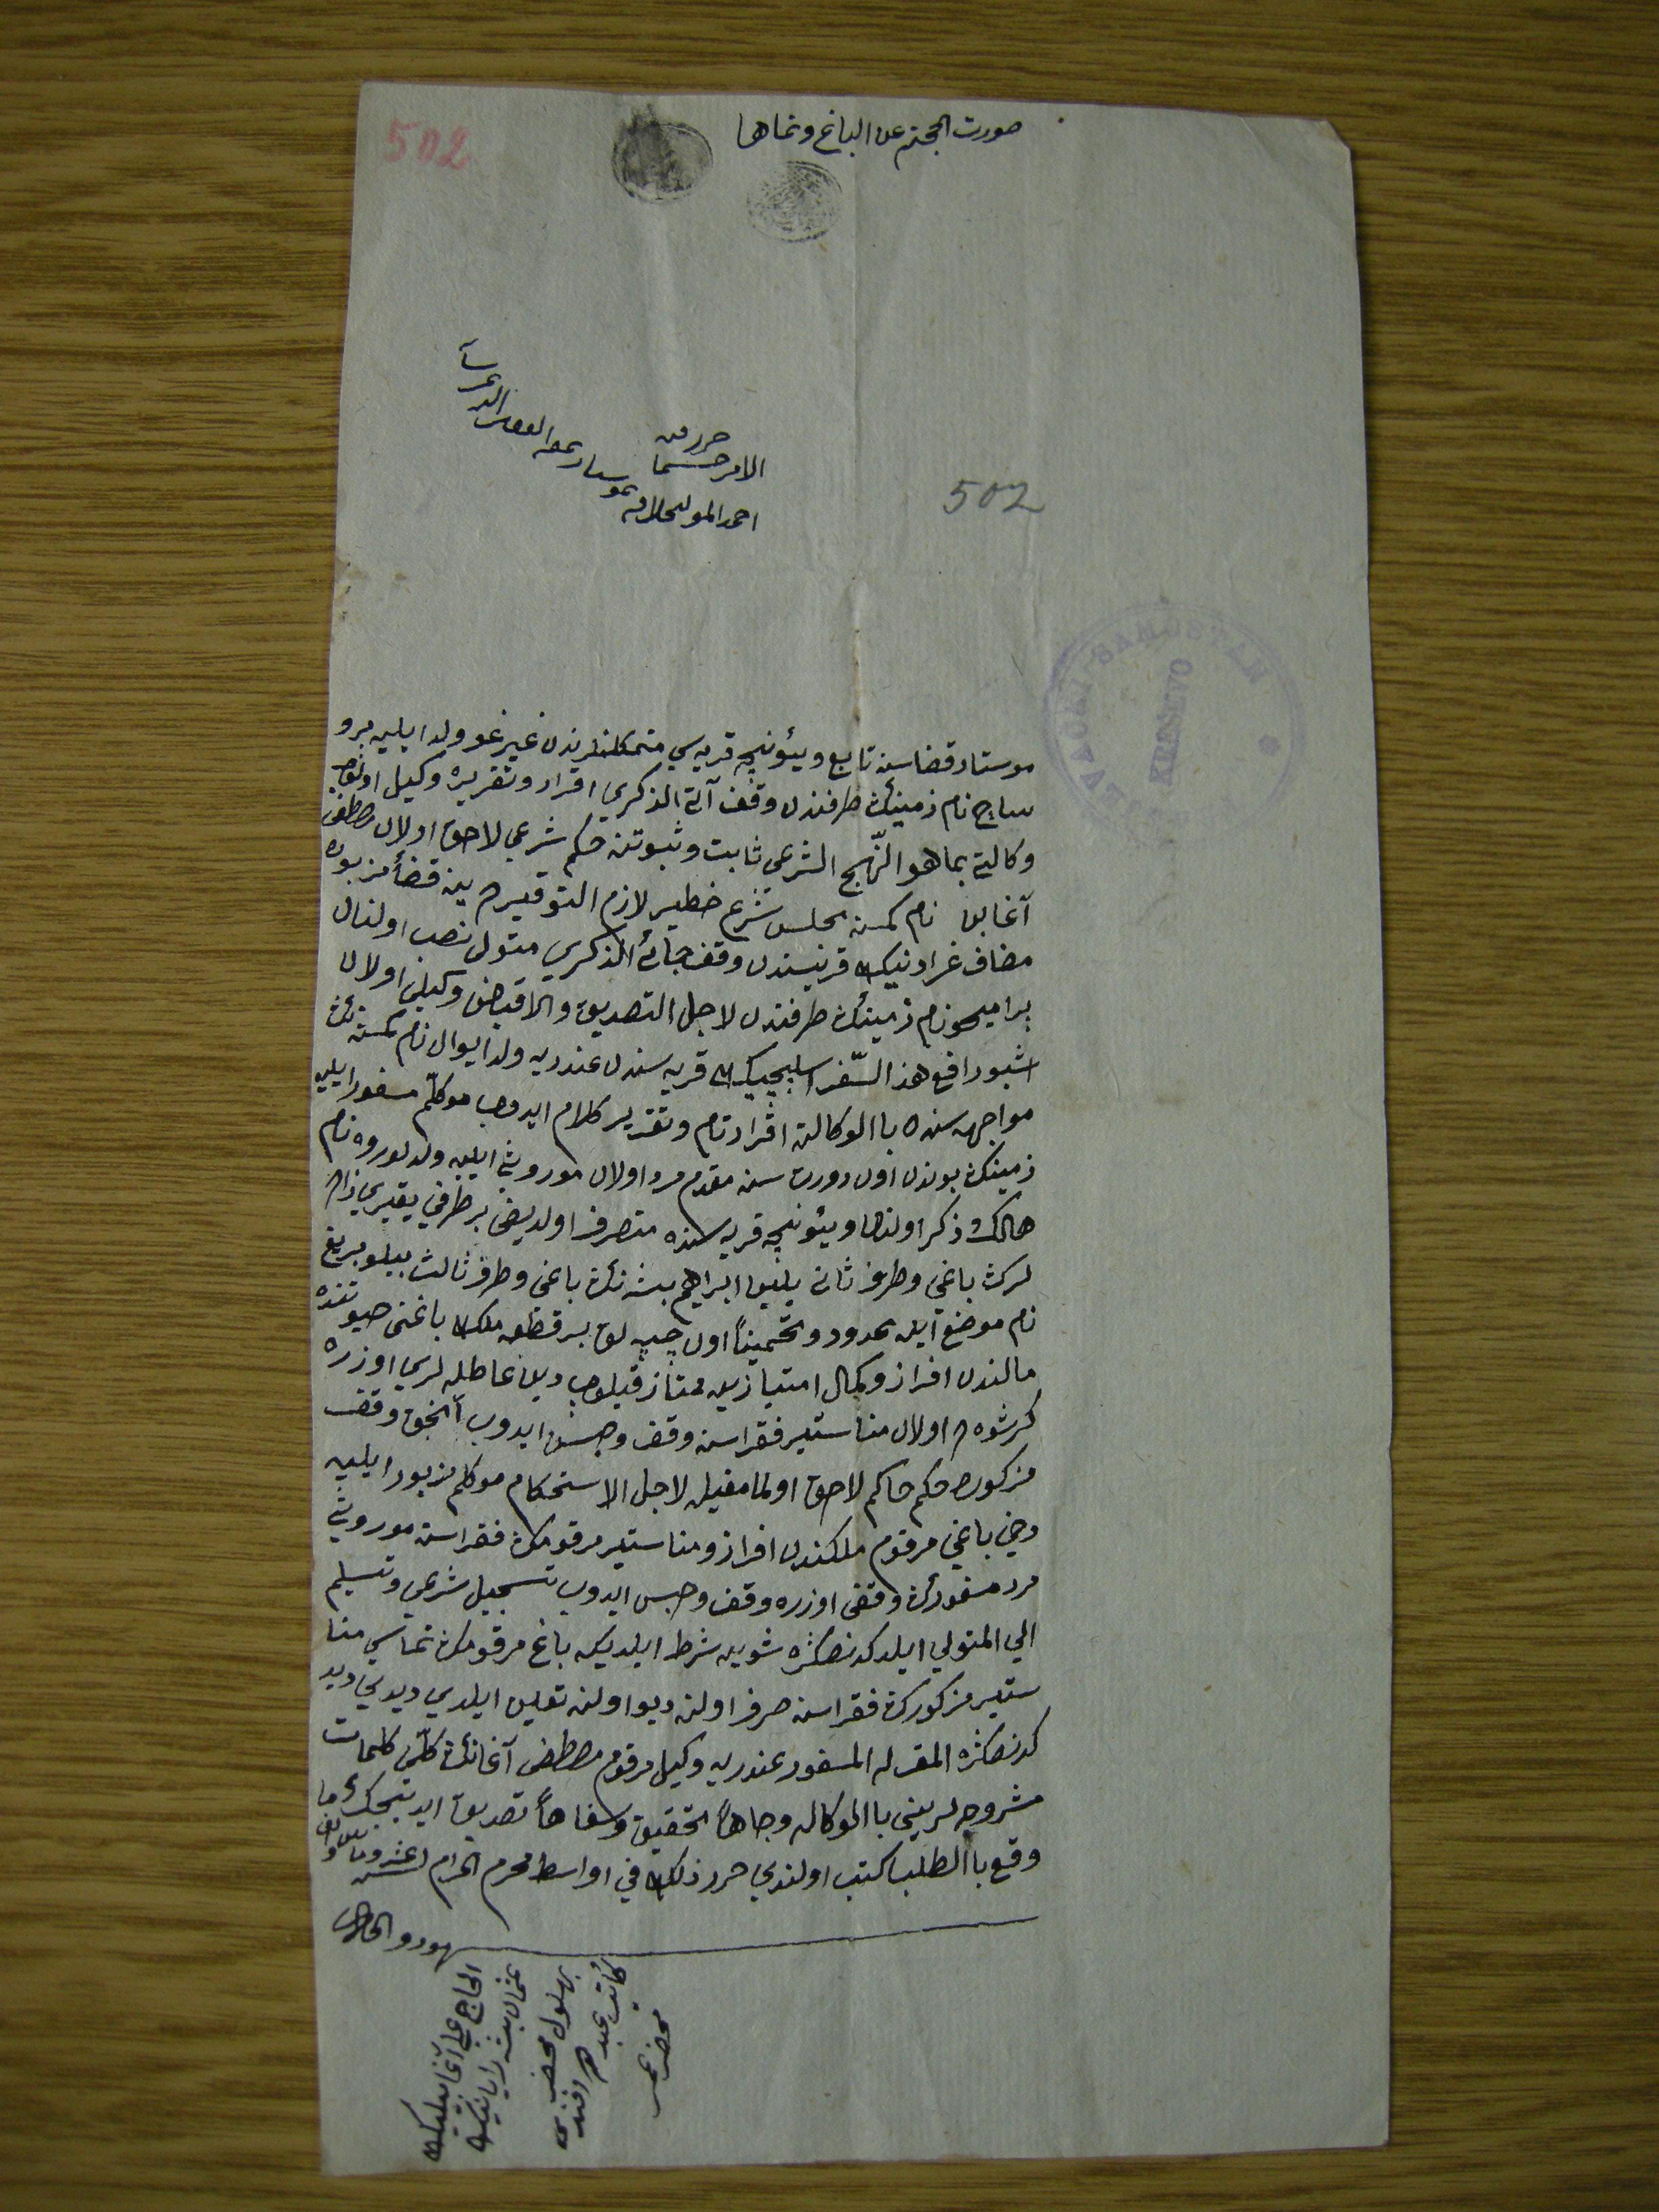 صورت الحجتم عن الباغ ونماها
502
حرر من
الامر حسبما
502
احمد المولى خلافه
EVANJ SAMOSTAN
KRUŠEVO
موستار قضاسنه تابع ويئونيچه قريه سي متمكنلرندن غيرغو ولد ايليه برو
ساج نام ذمينك طرفندن وقف آتي الذكري اقرار وتقريره وكيل اولوب
وكالتي بماهو النهج الشرعي ثابت وثبوتنه حكم شرعي لاحق اولان مصطفى
آغا بن نام كمسنه مجلس شرع خطير لازم التوقيره ينه قضأ مزبوره
مضاف غرادنيك قريسندن وقف جائ الذكري متولى نصب اولنان
براميحو نام ذمينك طرفندن لاجل التصديق والاقباض وكيلي اولان
اشبو رافع هذ السفر اسليچيك قريه سندن عندريه ولد ايوان نام كمسنه نك
مواجهه سنده باالوكالة اقرار تام وتقرير كلام ايدوب موكلم مسفور ايليه
ذمينك بوندن اون دورت سنه مقدم مرد اولان موروثي ايليه ولد يوروه نام
هالك ذكر اولنان ويئونيچه قريه سنده متصرف اولديغي بر طرفي يقيري نام
لرك باغي وطرف ثاني يلينا ابراهيم بشه نك باغي وطرف ثالث بيلو بريغ
نام موضع ايله محدود وتخمينا اون چپه لق بر قطعه ملك باغني حيوتنده
مالندن افراز وكمال امتيازيله ممتاز قيلوب دين عاطله لري اوزره
كرشوه ده اولان مناستير فقراسنه وقف وحبس ايدوب آنجق وقف
مزكوره حكم حاكم لاحق اولمامغيله لاجل الاستحكام موكلم مزبور ايليه
دخي باغي مرقوم ملكندن افراز ومناستير مرقومك فقراسنه موروثي
مرد مسفورك وقفي اوزره وقف وحبس ايدوب تسجيل شرعي وتسليم
الي المتولي ايلدكدنصكره شويله شرط ايلديكه باغ مرقومك نماسي منا
ستير مزكورك فقراسنه صرف اولنه ديو اولنه تعيين ايلدي ديدي ديد
كدنصكره المقر له المسفور عندريه وكيل مرقوم مصطفى آغانك كلى كلمات
مشروحه لريني باالوكاله وجاها تحقيق وشفاها تصديق ايديجك ما
وقع باالطلب كتب اولندي حرر ذلك في اواسط محرم الحرام
شهود الحال
الحاج علي آغا
عثمان بشه
بهلول محضر
كاتب عبد افندى
محضر عمر